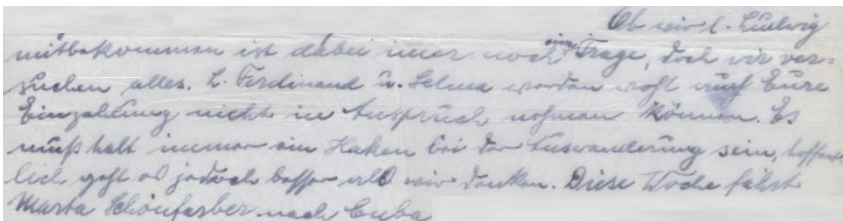 Ob wir l. Ludwig
mitbekommen ist dabei imer noch eine Frage, doch wir ver=
suchen alles. L. Ferdinand u. Selma werden wohl auch Eure
Einzahlung nicht in Anspruch nehmen können. Es
muß halt immer ein Haken bei der Auswanderung sein, hoffent-
lich geht es jedoch besser als wir denken. Diese Woche fährt
Marta Schönfarber nach Cuba